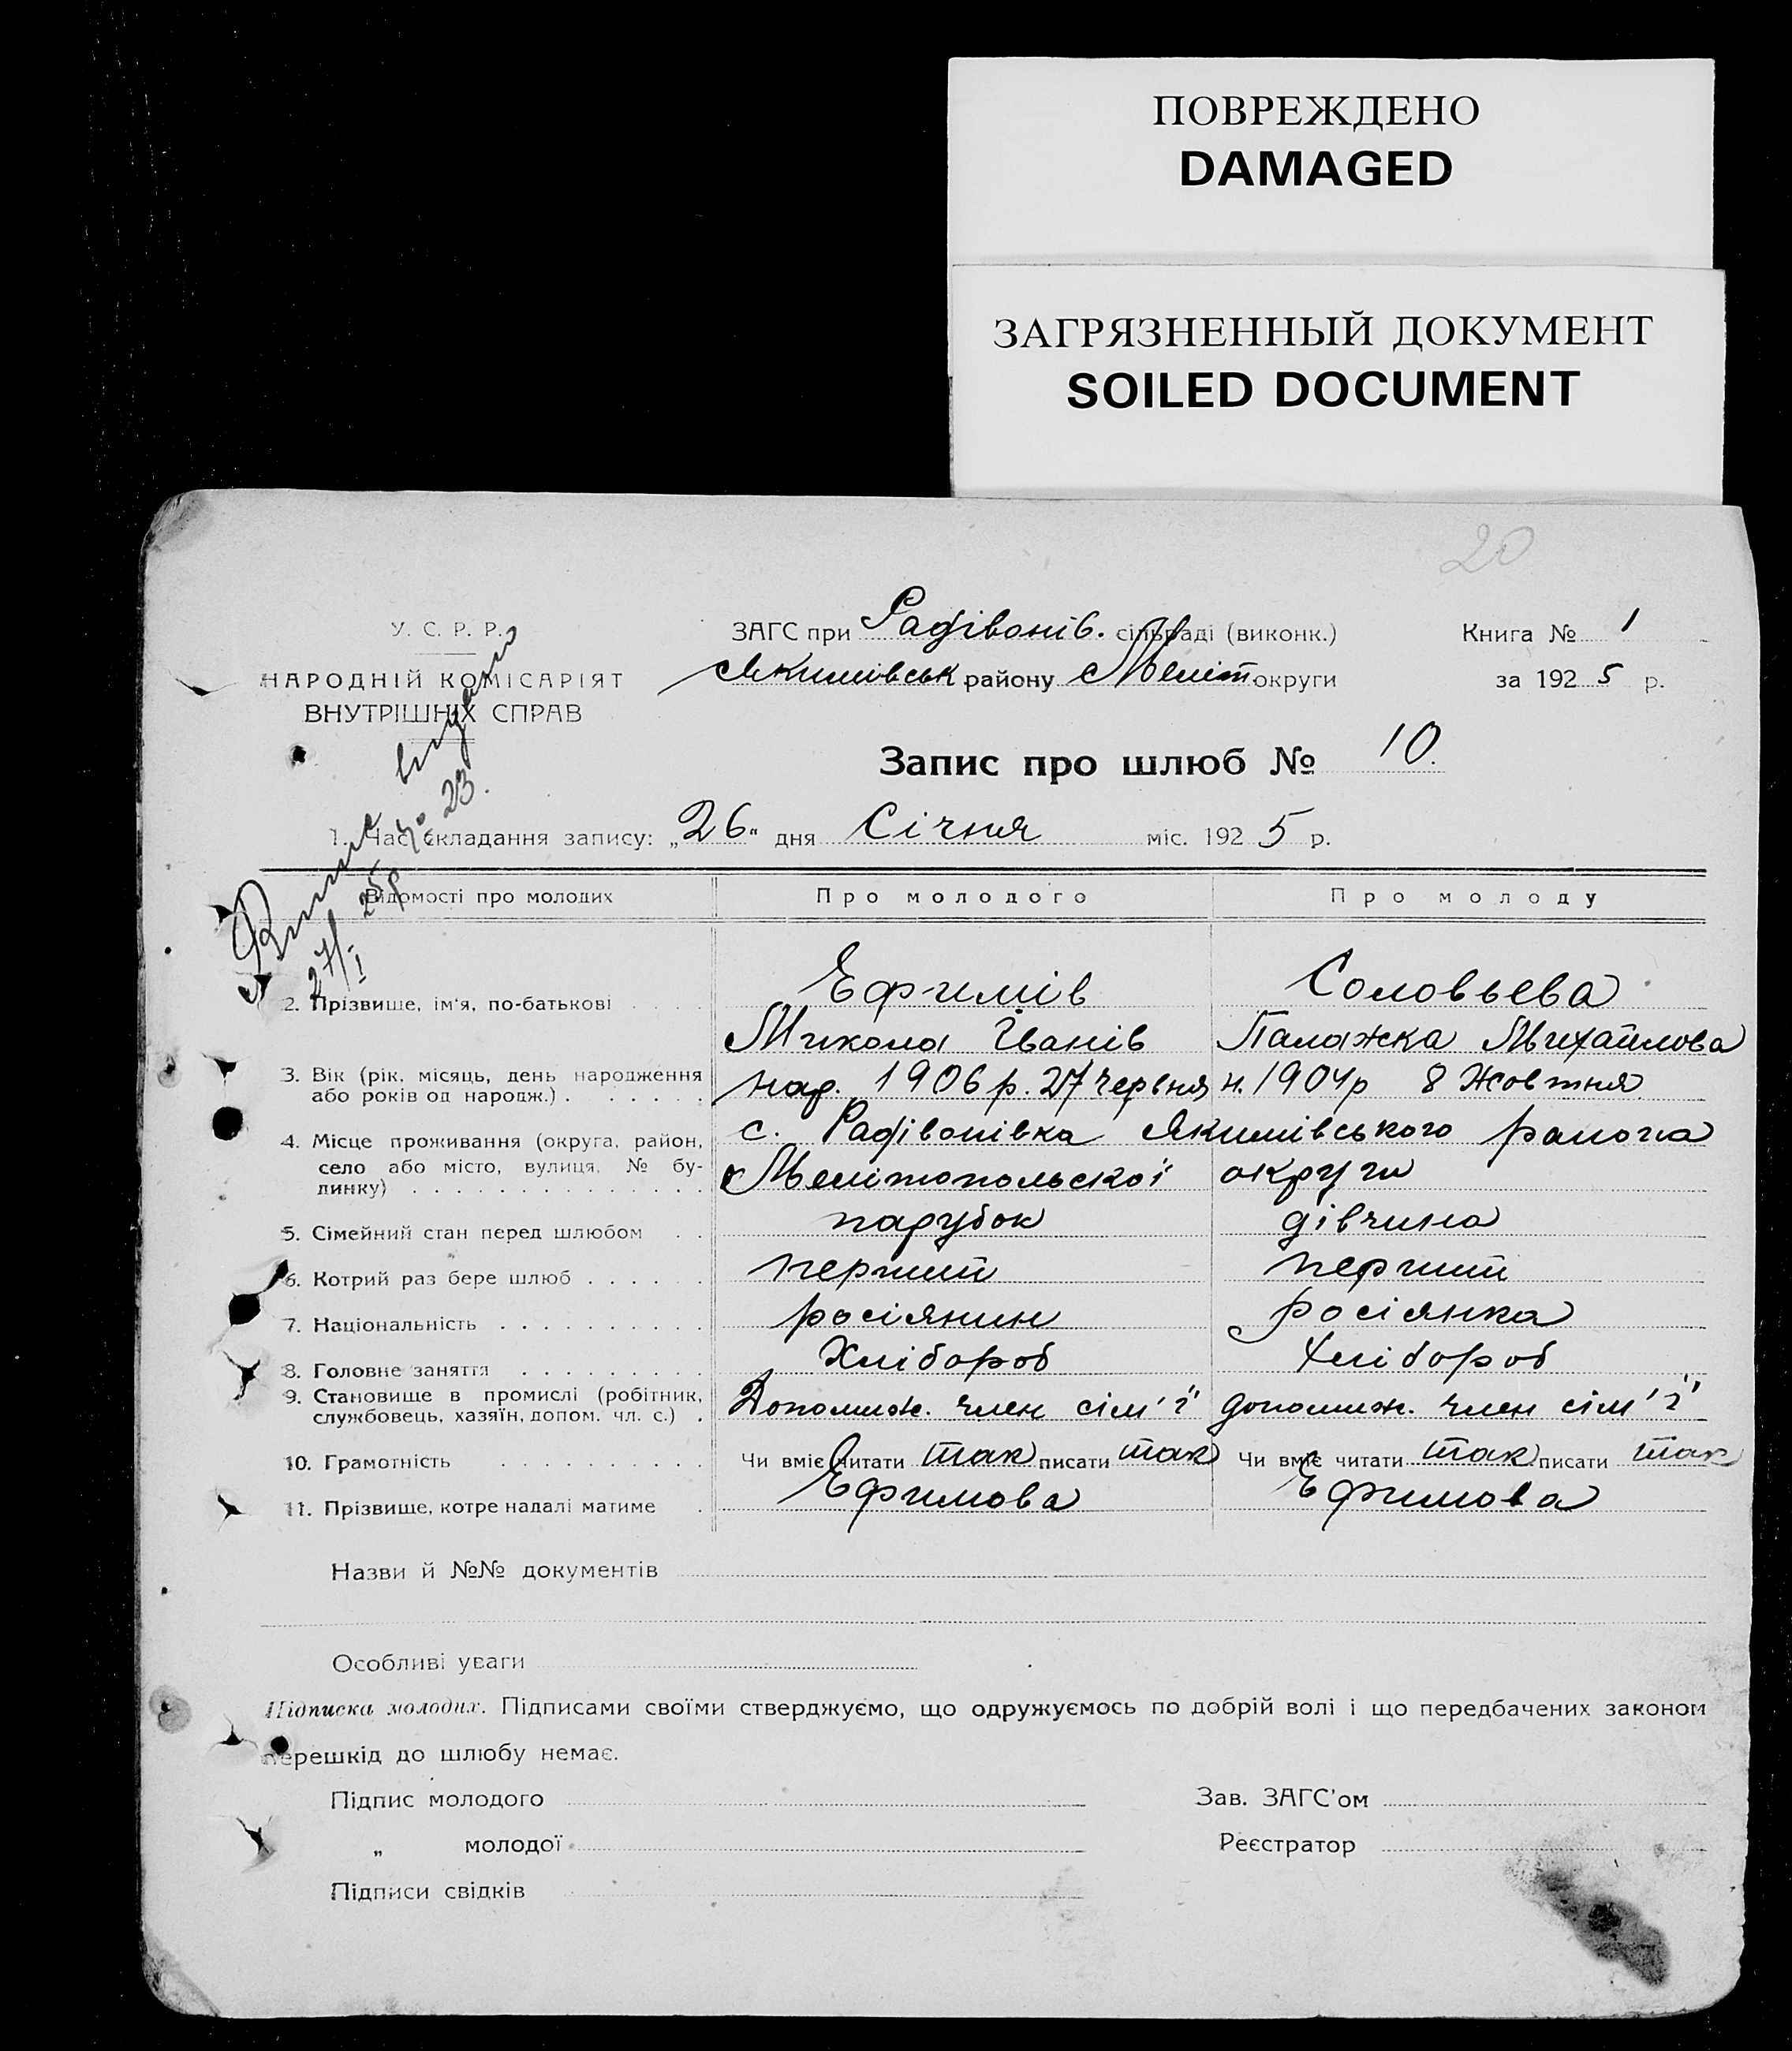 ПОВРЕЖДЕНО
DAMAGED
ЗАГРЯЗНЕННЫЙ ДОКУМЕНТ
SOILED DOCUMENT
20
У. С. Р. Р.
НАРОДНІЙ КОМІСАРІЯТ
ВНУТРІШНІХ СПРАВ
ЗАГС при Радівонів. сільраді (виконк.)
Якимівськ району Меліт. округи
Книга № 1
за 1925 р.
Виписе видано
27/I 25р № 23.
Запис про шлюб № 10.
1. Час складання запису: „26“ дня Січня міс. 1925 р.
Відомості про молодих Про молодого Про молоду
2. Прізвище, ім'я, по-батькові Ефимів Соловьева
Микола Іванів Палажка Михайлова
3. Вік (рік, місяць, день народження або років од народж.) нар. 1906 р. 27 червня н. 1904 р 8 Жовтня
4. Місце проживання (округа, район, с. Радівонівка Якимівського района
село або місто, вулиця, № будинку) Мелітопольскої округи
5. Сімейний стан перед шлюбом парубок дівчина
6. Котрий раз бере шлюб перший перший
7. Національність росіянин росіянка
8. Головне заняття Хлібороб Хлібороб
9. Становище в промислі (робітник, службовець, хазяїн, допом. чл. с.) Допомож. член сім'ї допомож. член сім'ї
10. Грамотність Чи вміє читати так писати так Чи вміє читати так писати так
11. Прізвище, котре надалі матиме Ефимова Ефимова
Назви й №№ документів
Особливі уваги
Підписка молодих. Підписами своїми стверджуємо, що одружуємось по добрій волі і що передбачених законом
перешкід до шлюбу немає.
Підпис молодого Зав. ЗАГС'ом
„ молодої Реєстратор
Підписи свідків